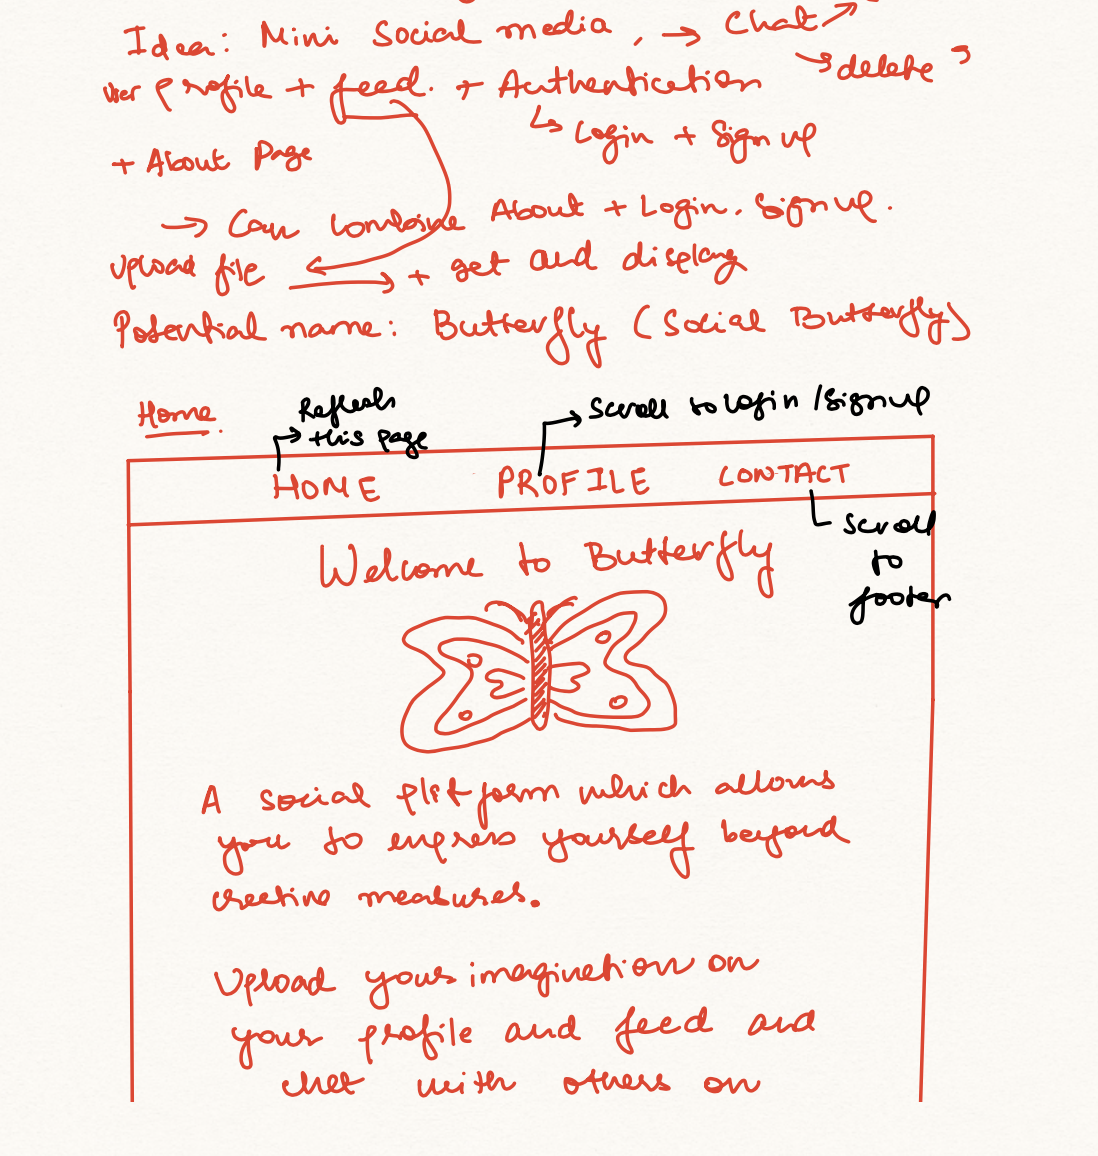 Idea: Mini Social media, → Chat ↗
↘ delete ?
User profile + feed. + Authentication
↳ Login + Sign up
+ About Page
→ Can combine About + Login. Sign up.
Upload file → + get and display
Potential name: Butterfly (Social Butterfly)
Home.
Refresh
this page
Scroll to login / Signup
HOME PROFILE CONTACT
Scroll
to
footer
Welcome to Butterfly
A social platform which allows
you to express yourself beyond
creative measures.
Upload your imagination on
your profile and feed and
chat with others on